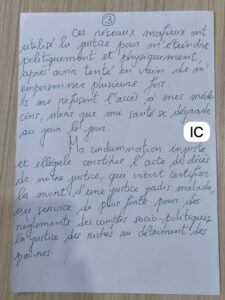 3
Ces réseaux mafieux ont
utilisé la justice pour m'éteindre
politiquement et physiquement,
après avoir tenté en vain de m'
emprisonner plusieurs fois.
Ils me refusent l'accès à mes méde-
cins, alors que ma santé se dégrade
au jour le jour.
IC
Ma condamnation injuste
et illégale constitue l'acte de décès
de notre justice, qui vient certifier
la mort d'une justice jadis malade,
au service de plus forts pour des
règlements des comptes socio-politiques,
la justice des riches au détriment des
pauvres.